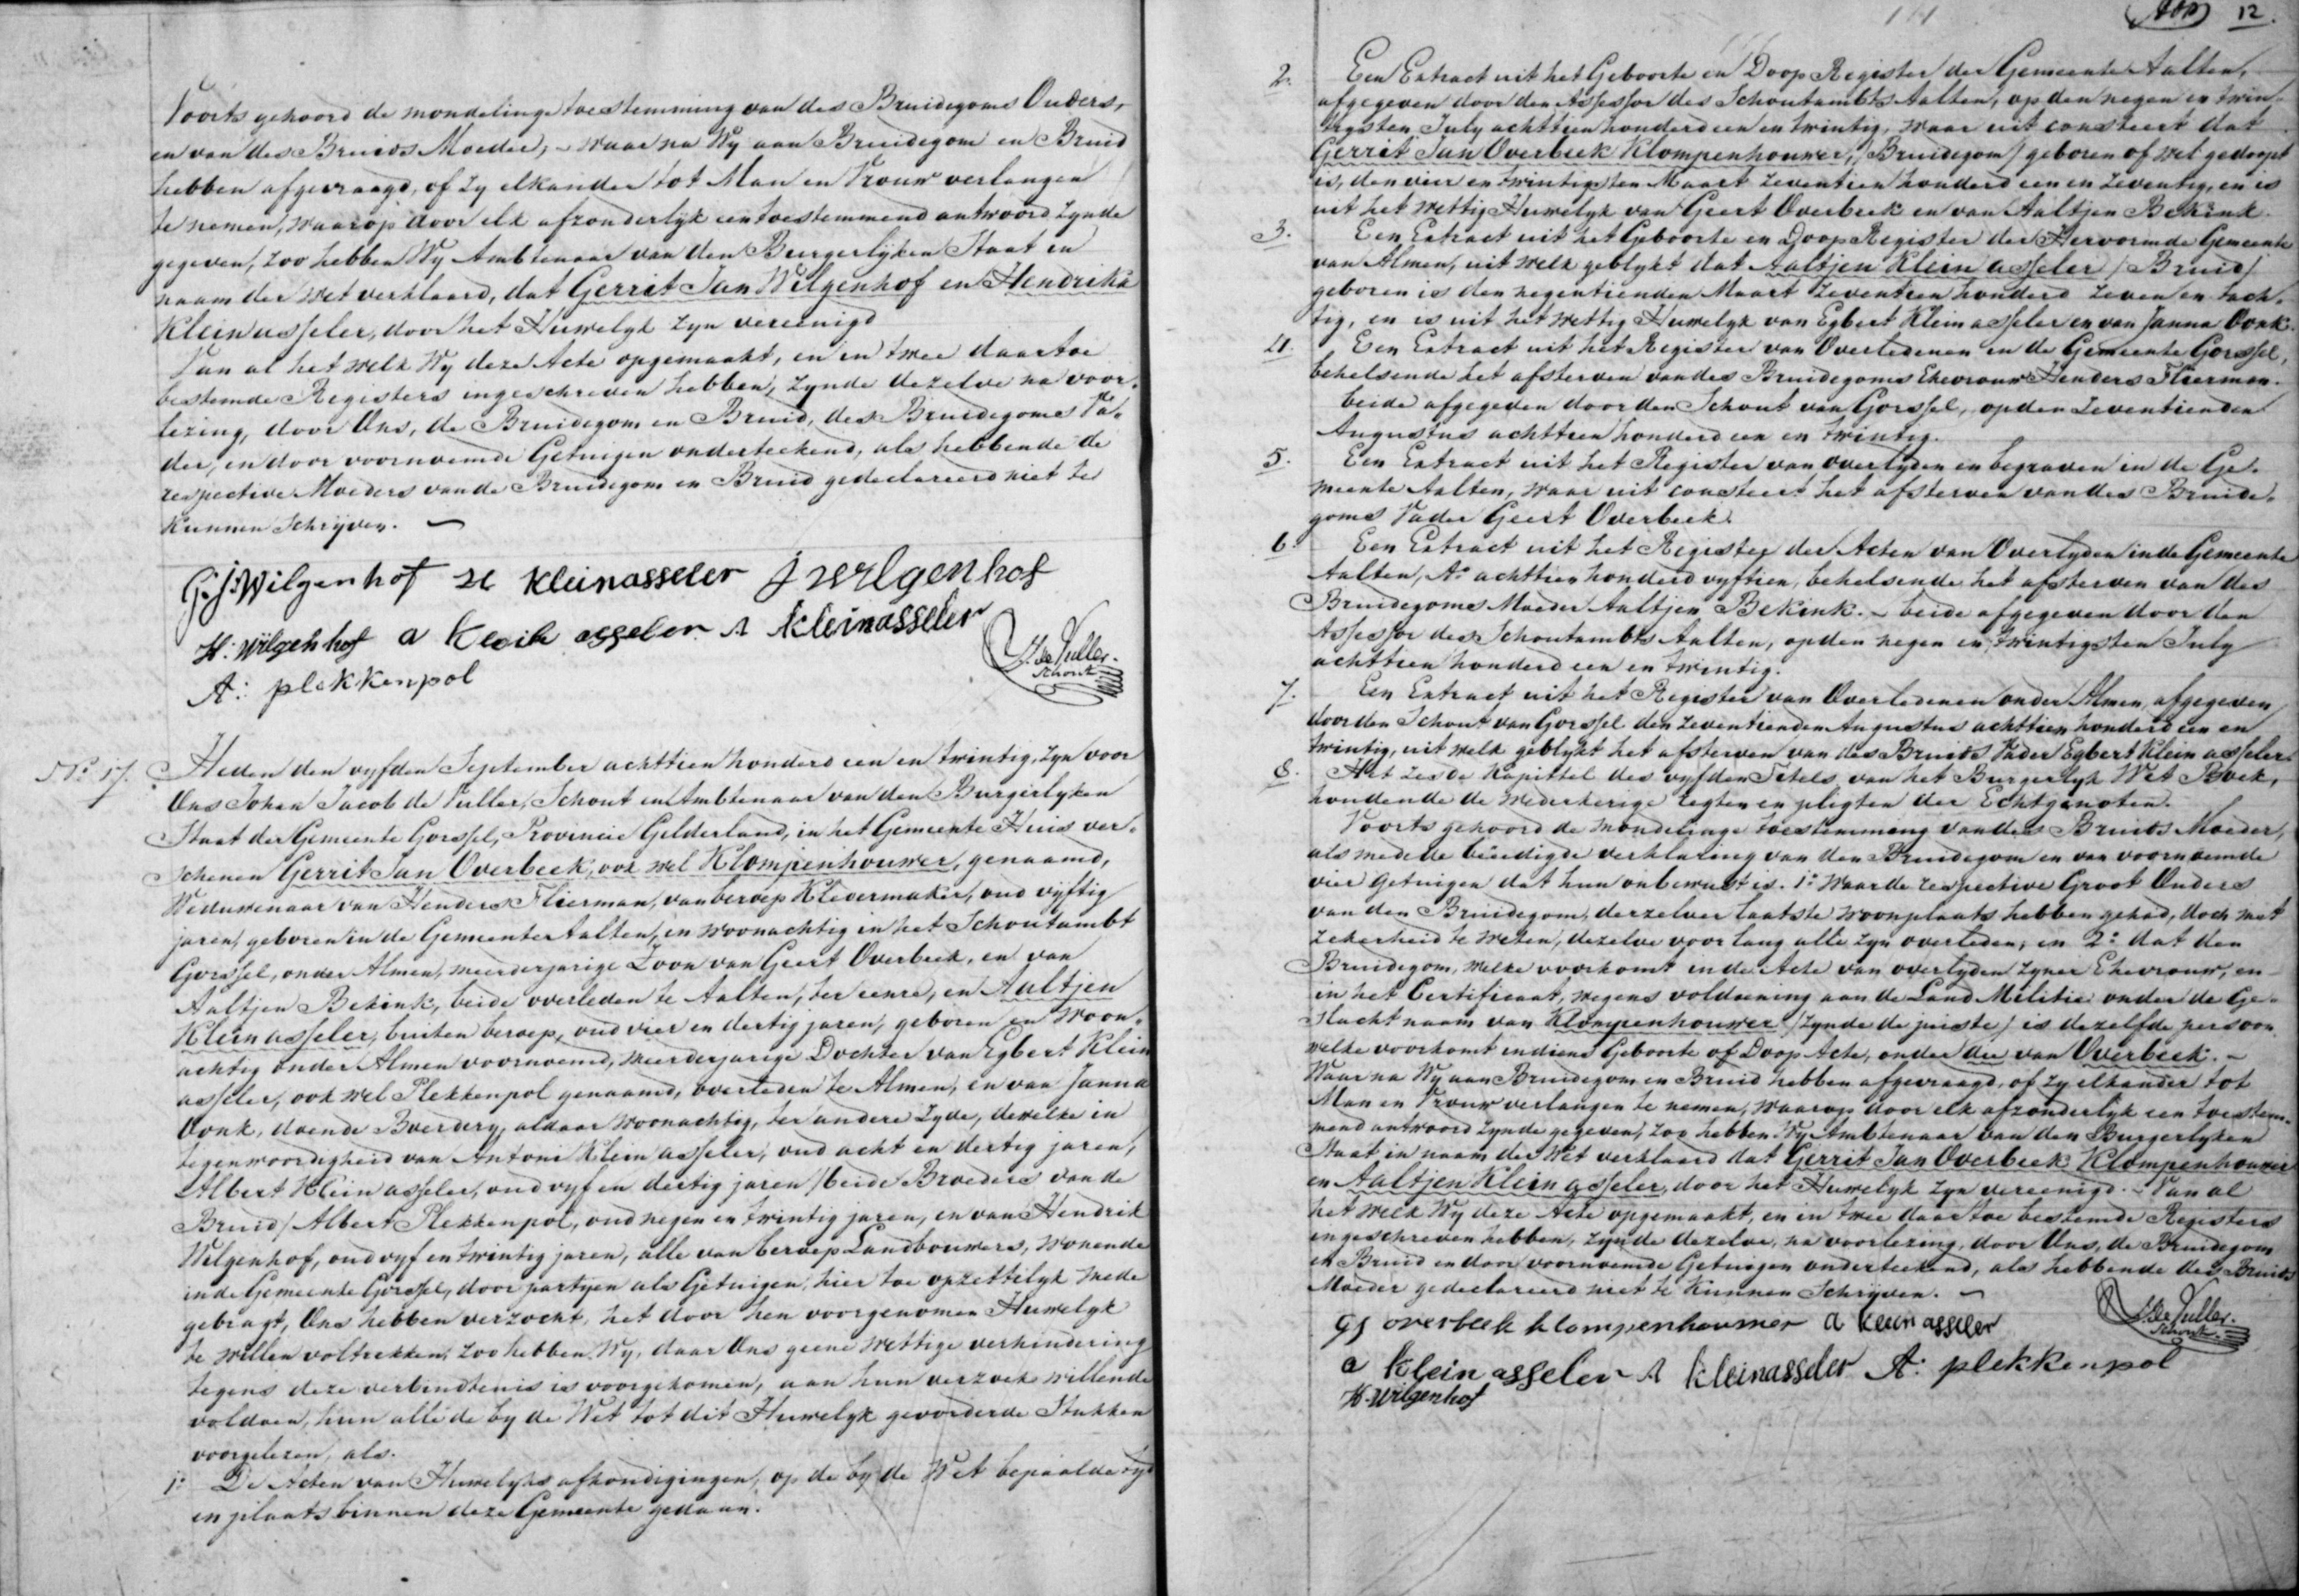 Voorts gehoord de mondelinge toestemming van des Bruidegoms Ouders,
en van des Bruids Moeder; – waar na Wy aan Bruidegom en Bruid
hebben afgevraagd, of zy elkander tot Man en Vrouw verlangen
te nemen, waarop door elk afzonderlyk een toestemmend antwoord zynde
gegeven, zoo hebben Wy Ambtenaar van den Burgerlyken Staat in
naam der Wet verklaard, dat Gerrit Jan Wilgenhof en Hendrika
Klein asseler, door het Huwelyk zyn vereenigd
Van al het welk Wy deze Acte opgemaakt, en in twee daartoe
bestemde Registers ingeschreven hebben, zynde dezelve na voor-
lezing, door Ons, de Bruidegom en Bruid, des Bruidegoms Va-
der, en door voornoemde Getuigen onderteekend, als hebbende de
respective Moeders van de Bruidegom en Bruid gedeclareerd niet te
kunnen Schryven. –
G:J:Wilgenhof H kleinasseler J wilgenhof
H: Wilgenhof a klein asseler A kleinasseler
A: plekkenpol
J. de Vuller.
Schout
No 17. Heden den vyfden September achttien honderd een en twintig, zyn voor
Ons Johan Jacob de Vuller, Schout en Ambtenaar van den Burgerlyken
Staat der Gemeente Gorssel, Provincie Gelderland, in het Gemeente Huis ver-
schenen Gerrit Jan Overbeek, ook wel Klompenhouwer, genaamd,
Weduwenaar van Henders Flierman, van beroep Kledermaker, oud vyftig
jaren, geboren in de Gemeente Aalten, en woonachtig in het Schoutambt
Gorssel, onder Almen, meerderjarige Zoon van Geert Overbeek, en van
Aaltjen Bekink, beide overleden te Aalten, ter eenre, en Aaltjen
Klein asseler, buiten beroep, oud vier en dertig jaren, geboren en woon-
achtig onder Almen voornoemd, meerderjarige Dochter van Egbert Klein
asseler, ook wel Plekkenpol genaamd, overleden te Almen, en van Janna
Oonk, doende Boerdery, aldaar woonachtig, ter andere Zyde, dewelke in
tegenwoordigheid van Antoni Klein asseler, oud acht en dertig jaren,
Albert Klein asseler, oud vyf en dertig jaren / beide Broeders van de
Bruid / Albert Plekkenpol, oud negen en twintig jaren, en van Hendrik
Wilgenhof, oud vyf en twintig jaren, alle van beroep Landbouwers, wonende
in de Gemeente Gorssel, door partyen als Getuigen, hier toe opzettelyk mede
gebragt, Ons hebben verzocht, het door hen voorgenomen Huwelyk
te willen voltrekken, zoo hebben Wy, daar Ons geene wettige verhindering
tegens deze verbindtenis is voorgekomen, aan hun verzoek willende
voldoen, hun alle de by de Wet tot dit Huwelyk gevorderde Stukken
voorgelezen, als.
1o De Acten van Huwelyks afkondigingen, op de by de Wet bepaalde tyd
en plaats binnen deze Gemeente gedaan.
12.
2. Een Extract uit het Geboorte en Doop Register der Gemeente Aalten,
afgegeven door den Assessor des Schoutambts Aalten, op den negen en twin-
tigsten July achttien honderd een en twintig, waar uit consteert dat
Gerrit Jan Overbeek Klompenhouwer, / Bruidegom / geboren of wel gedoopt
is, den vier en twintigsten Maart zeventien honderd een en zeventig, en is
uit het wettig Huwelyk van Geert Overbeek en van Aaltjen Bekink.
3. Een Extract uit het Geboorte en Doop Register der Hervormde Gemeente
van Almen, uit welk geblykt dat Aaltjen Klein asseler / Bruid /
geboren is den negentienden Maart zeventien honderd zeven en tach-
tig, en is uit het wettig Huwelyk van Egbert Klein asseler en van Janna Oonk.
4. Een Extract uit het Register van Overledenen in de Gemeente Gorssel,
behelsende het afsterven van des Bruidegoms Ehevrouw Henders Flierman.
beide afgegeven door den Schout van Gorssel, op den zeventienden
Augustus achttien honderd een en twintig.
5. Een Extract uit het Register van overlyden en begraven in de Ge-
meente Aalten, waar uit consteert het afsterven van des Bruide-
goms Vader Geert Overbeek.
6. Een Extract uit het Register der Acten van Overlyden in de Gemeente
Aalten, Ao achttien honderd vyftien, behelsende het afsterven van des
Bruidegoms Moeder Aaltjen Bekink. – beide afgegeven door den
Assessor des Schoutambts Aalten, op den negen en twintigsten July
achttien honderd een en twintig.
7. Een Extract uit het Register van Overledenen onder Almen, afgegeven
door den Schout van Gorssel den zeventienden Augustus achttien honderd een en
twintig, uit welk geblykt het afsterven van des Bruids Vader Egbert Klein asseler.
8. Het zesde Kapittel des vyfden Titels van het Burgerlyk Wet Boek,
houdende de wederkerige regten en pligten der Echtgenoten.
Voorts gehoord de mondelinge toestemming van des Bruids Moeder,
als mede de beëedigde verklaring van den Bruidegom en van voornoemde
vier Getuigen dat hun onbewust is. 1o waar de respective Groot Ouders
van den Bruidegom, derzelver laatste woonplaats hebben gehad, doch met
zekerheid te weten, dezelve voor lang alle zyn overleden, en 2o dat den
Bruidegom, welke voorkomt in de Acte van overlyden zyner Ehevrouw, en
in het Certificaat, wegens voldoening aan de Land Militie onder de Ge-
slacht naam van Klompenhouwer / zynde de juiste / is dezelfde persoon
welke voorkomt in diens Geboorte of Doop Acte, onder die van Overbeek. –
Waar na Wy aan Bruidegom en Bruid hebben afgevraagd, of zy elkander tot
Man en Vrouw verlangen te nemen, waarop door elk afzonderlyk een toestem-
mend antwoord zynde gegeven, zoo hebben Wy Ambtenaar van den Burgerlyken
Staat in naam der Wet verklaard dat Gerrit Jan Overbeek Klompenhouwer
en Aaltjen Klein asseler, door het Huwelyk zyn vereenigd. – Van al
het welk Wy deze Acte opgemaakt, en in twee daar toe bestemde Registers
ingeschreven hebben, zynde dezelve, na voorlezing, door Ons, de Bruidegom
en Bruid en door voornoemde Getuigen onderteekend, als hebbende des Bruids
Moeder gedeclareerd niet te kunnen Schryven. –
GJ overbeek klompenhouwer a klein asseler
J. de Vuller.
Schout.
a klein asseler A kleinasseler A: plekkenpol
H. Wilgenhof